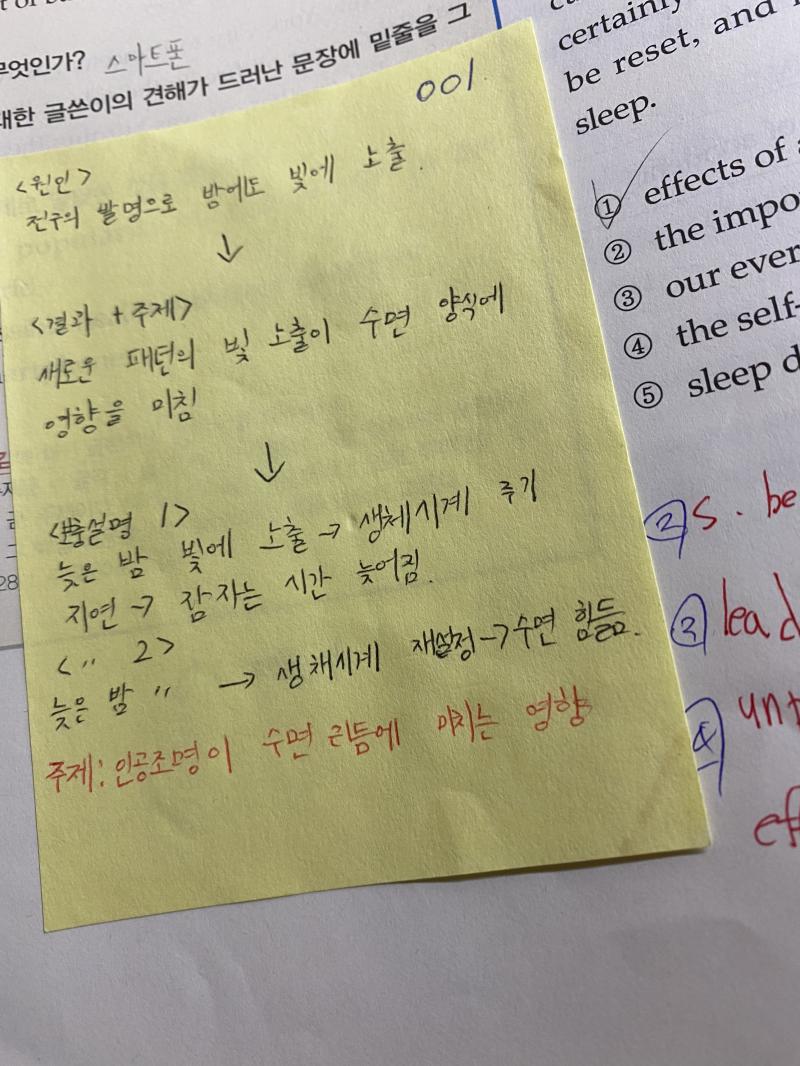 무엇인가? 스마트폰
대한 글쓴이의 견해가 드러난 문장에 밑줄을 그
001
<원인>
전구의 발명으로 밤에도 빛에 노출.
↓
<결과 + 주제>
새로운 패턴의 빛 노출이 수면 양식에
영향을 미침
↓
<보충설명 1>
늦은 밤 빛에 노출 → 생체시계 주기
지연 → 잠 자는 시간 늦어짐.
<〃 2>
늦은 밤 〃 → 생채시계 재설정 → 수면 힘듦.
주제: 인공조명이 수면 리듬에 미치는 영향
certainly
be reset, and
sleep.
① effects of
② the impo
③ our ever
④ the self-
⑤ sleep d
② s. be
③ lead
④ unt
eff
28